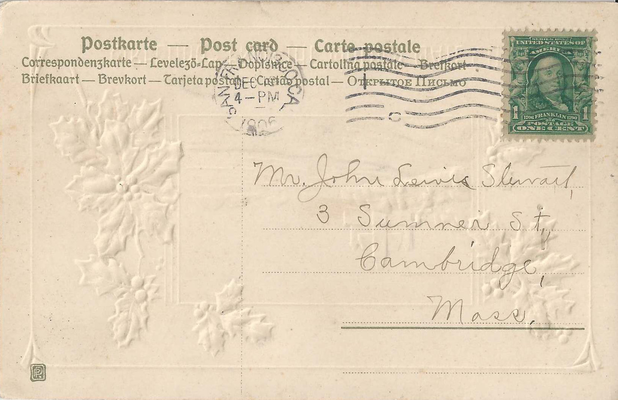 Postkarte — Post card — Carte postale
Correspondenzkarte — Levelező-Lap — Dopisnice — Cartolina postale — Brefkort
Briefkaart — Brevkort — Tarjeta postal — Cartão postal — Открытое Письмо
DEC
4 - PM
SERIES 1902
UNITED STATES OF AMERICA
1 FRANKLIN 1
POSTAGE
ONE CENT
Mr. John Lewis Stewart,
3 Summer St.,
Cambridge,
Mass.